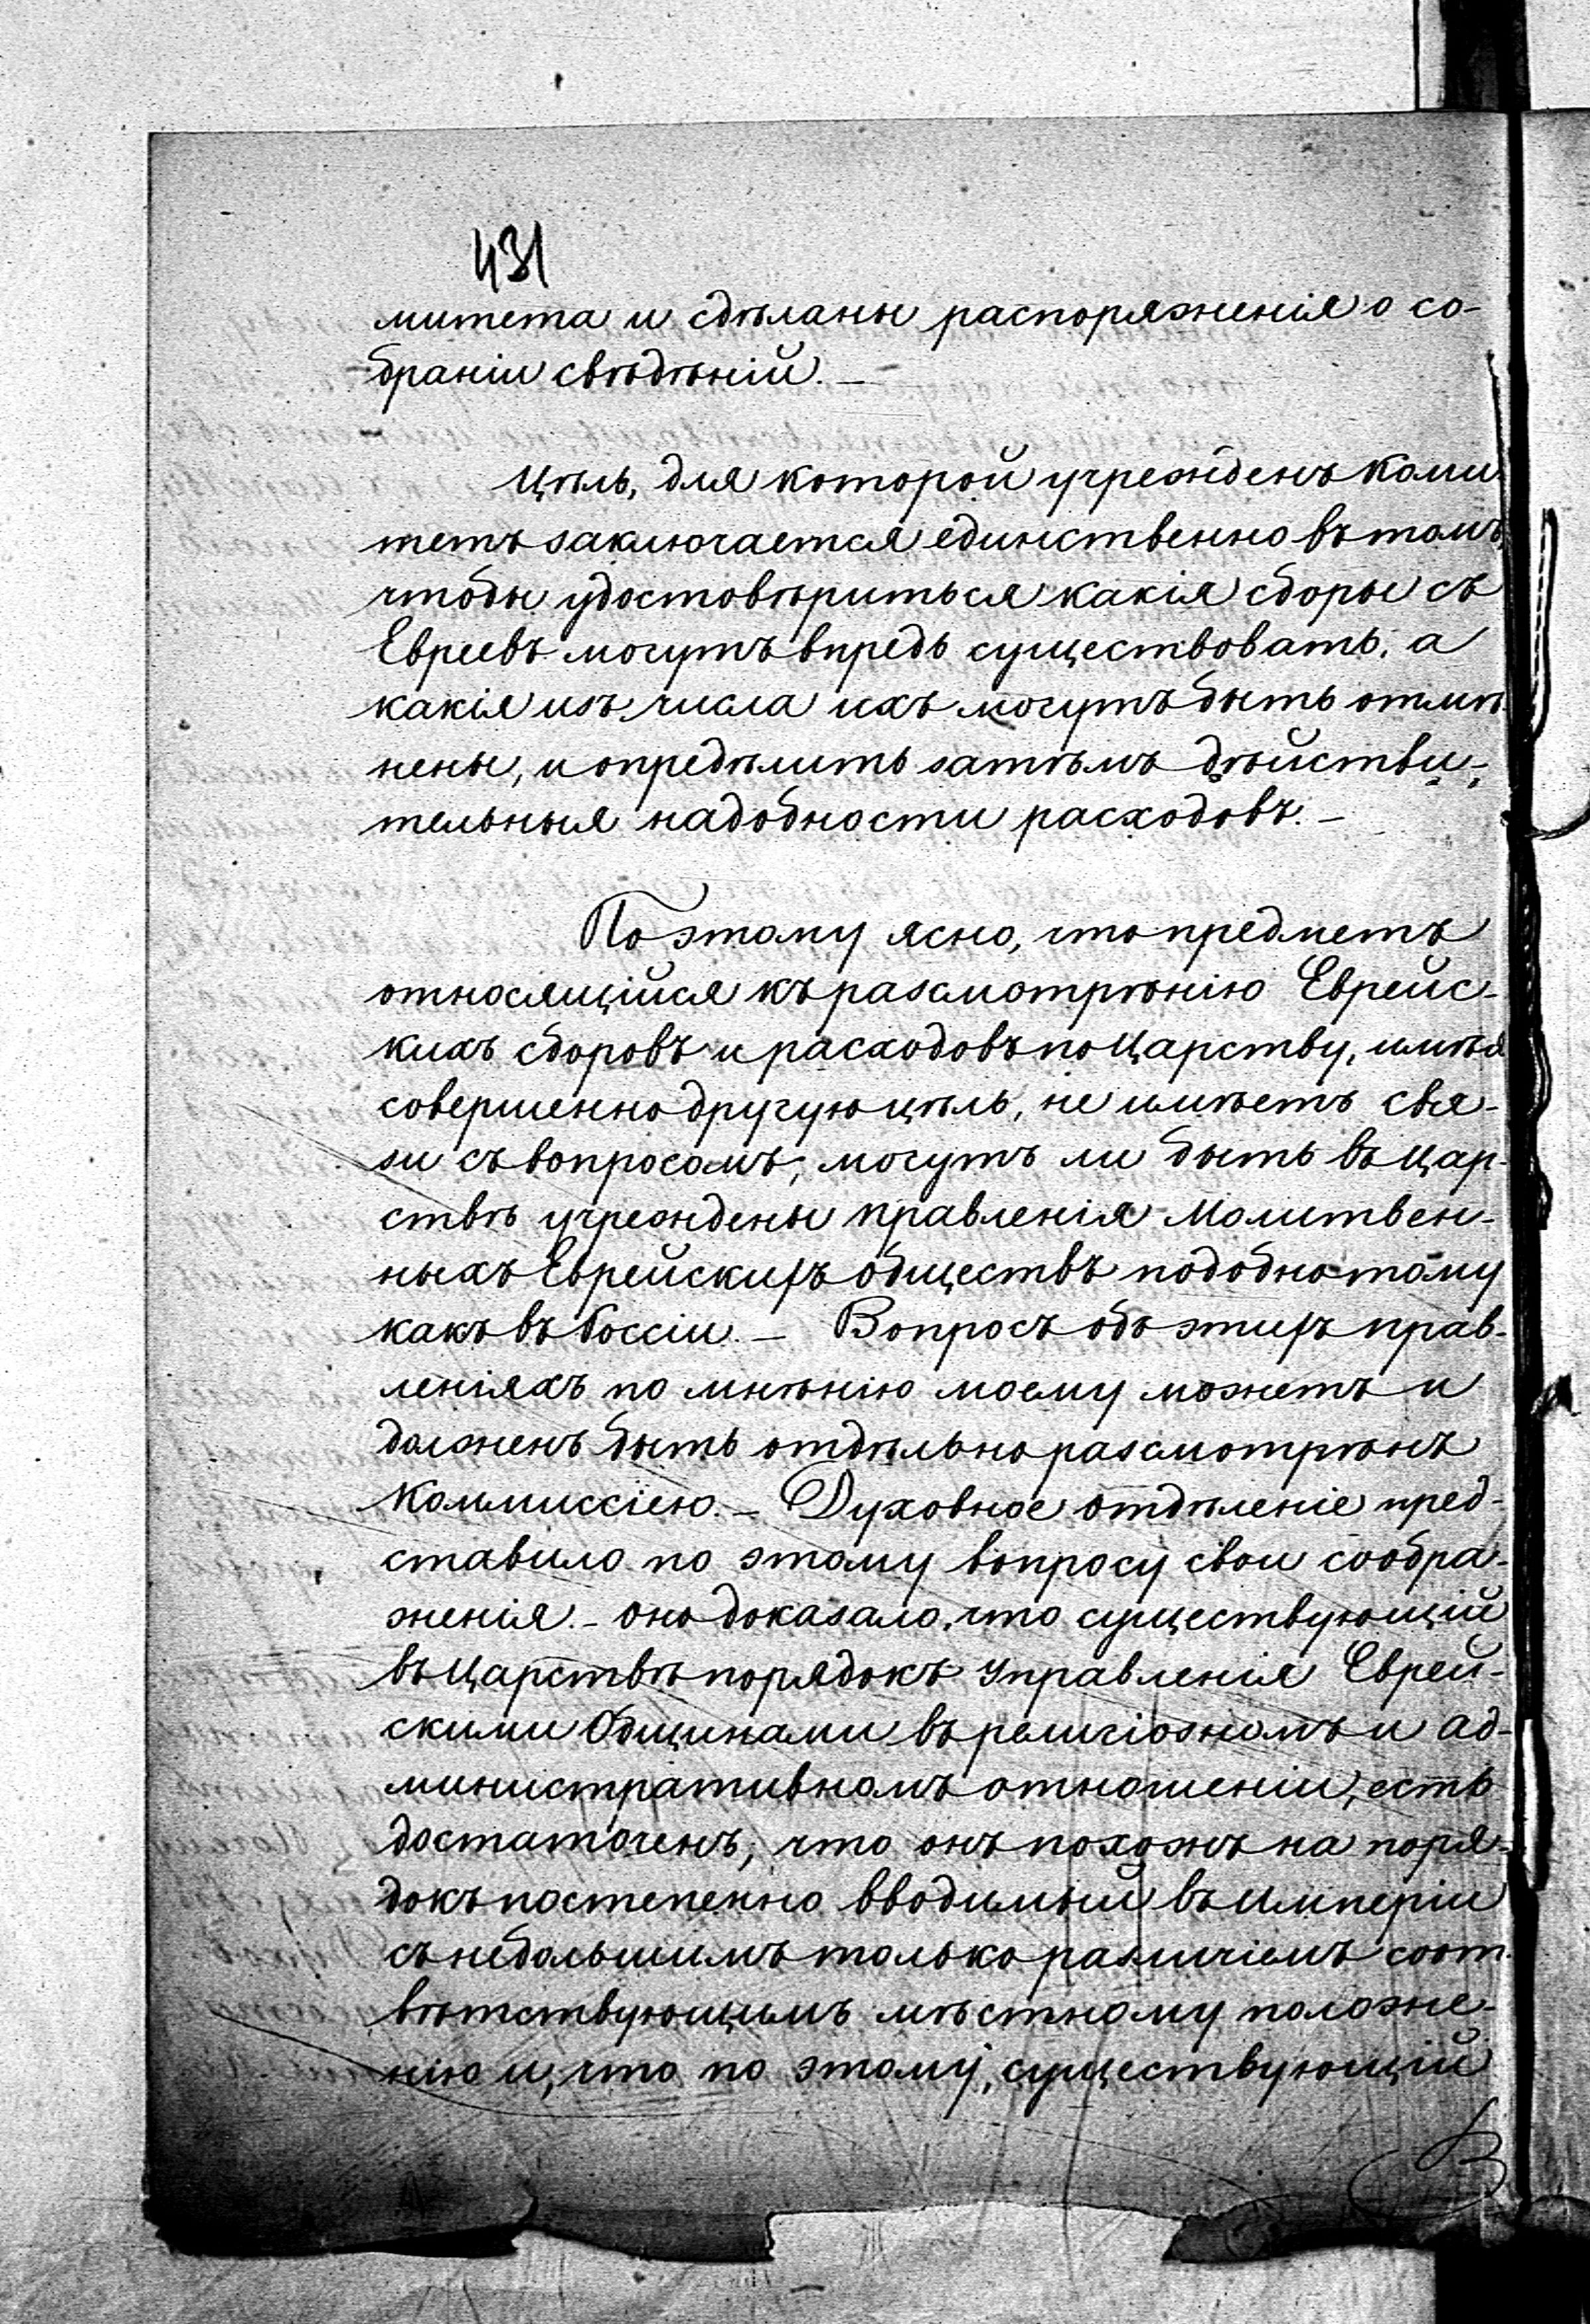 431
митета и сдѣланы распоряженія о со-
браніи свѣдѣній. —
Цѣль, для которой учрежденъ Коми-
тетъ заключается единственно въ томъ,
чтобы удостовѣриться какія сборы съ
Евреевъ могутъ впредь существовать, а
какія изъ числа ихъ могутъ быть отмѣ-
нены, и опредѣлить затѣмъ дѣйстви-
тельныя надобности расходовъ. —
По этому ясно, что предметъ
относящійся къ разсмотрѣнію Еврейс-
кихъ сборовъ и расходовъ по Царству, имѣя
совершенно другую цѣль, не имѣетъ свя-
зи съ вопросомъ; могутъ ли быть въ Цар-
ствѣ учреждены правленія Молитвен-
ныхъ Еврейскихъ обществъ подобно тому
какъ въ Россіи. — Вопросъ объ этихъ прав-
леніяхъ по мнѣнію моему можетъ и
долженъ быть отдѣльно разсмотрѣнъ
Коммиссіею. — Духовное отдѣленіе пред-
ставило по этому вопросу свои сообра-
женія. — оно доказало, что существующій
въ Царствѣ порядокъ управленія Еврей-
скими Общинами въ религіозномъ и ад-
министративномъ отношеніи, есть
достаточенъ; что онъ похожъ на поря-
докъ постепенно вводимый въ Имперіи
съ небольшимъ только различіемъ соот-
вѣтствующимъ мѣстному положе-
нію и, что по этому, существующій
В